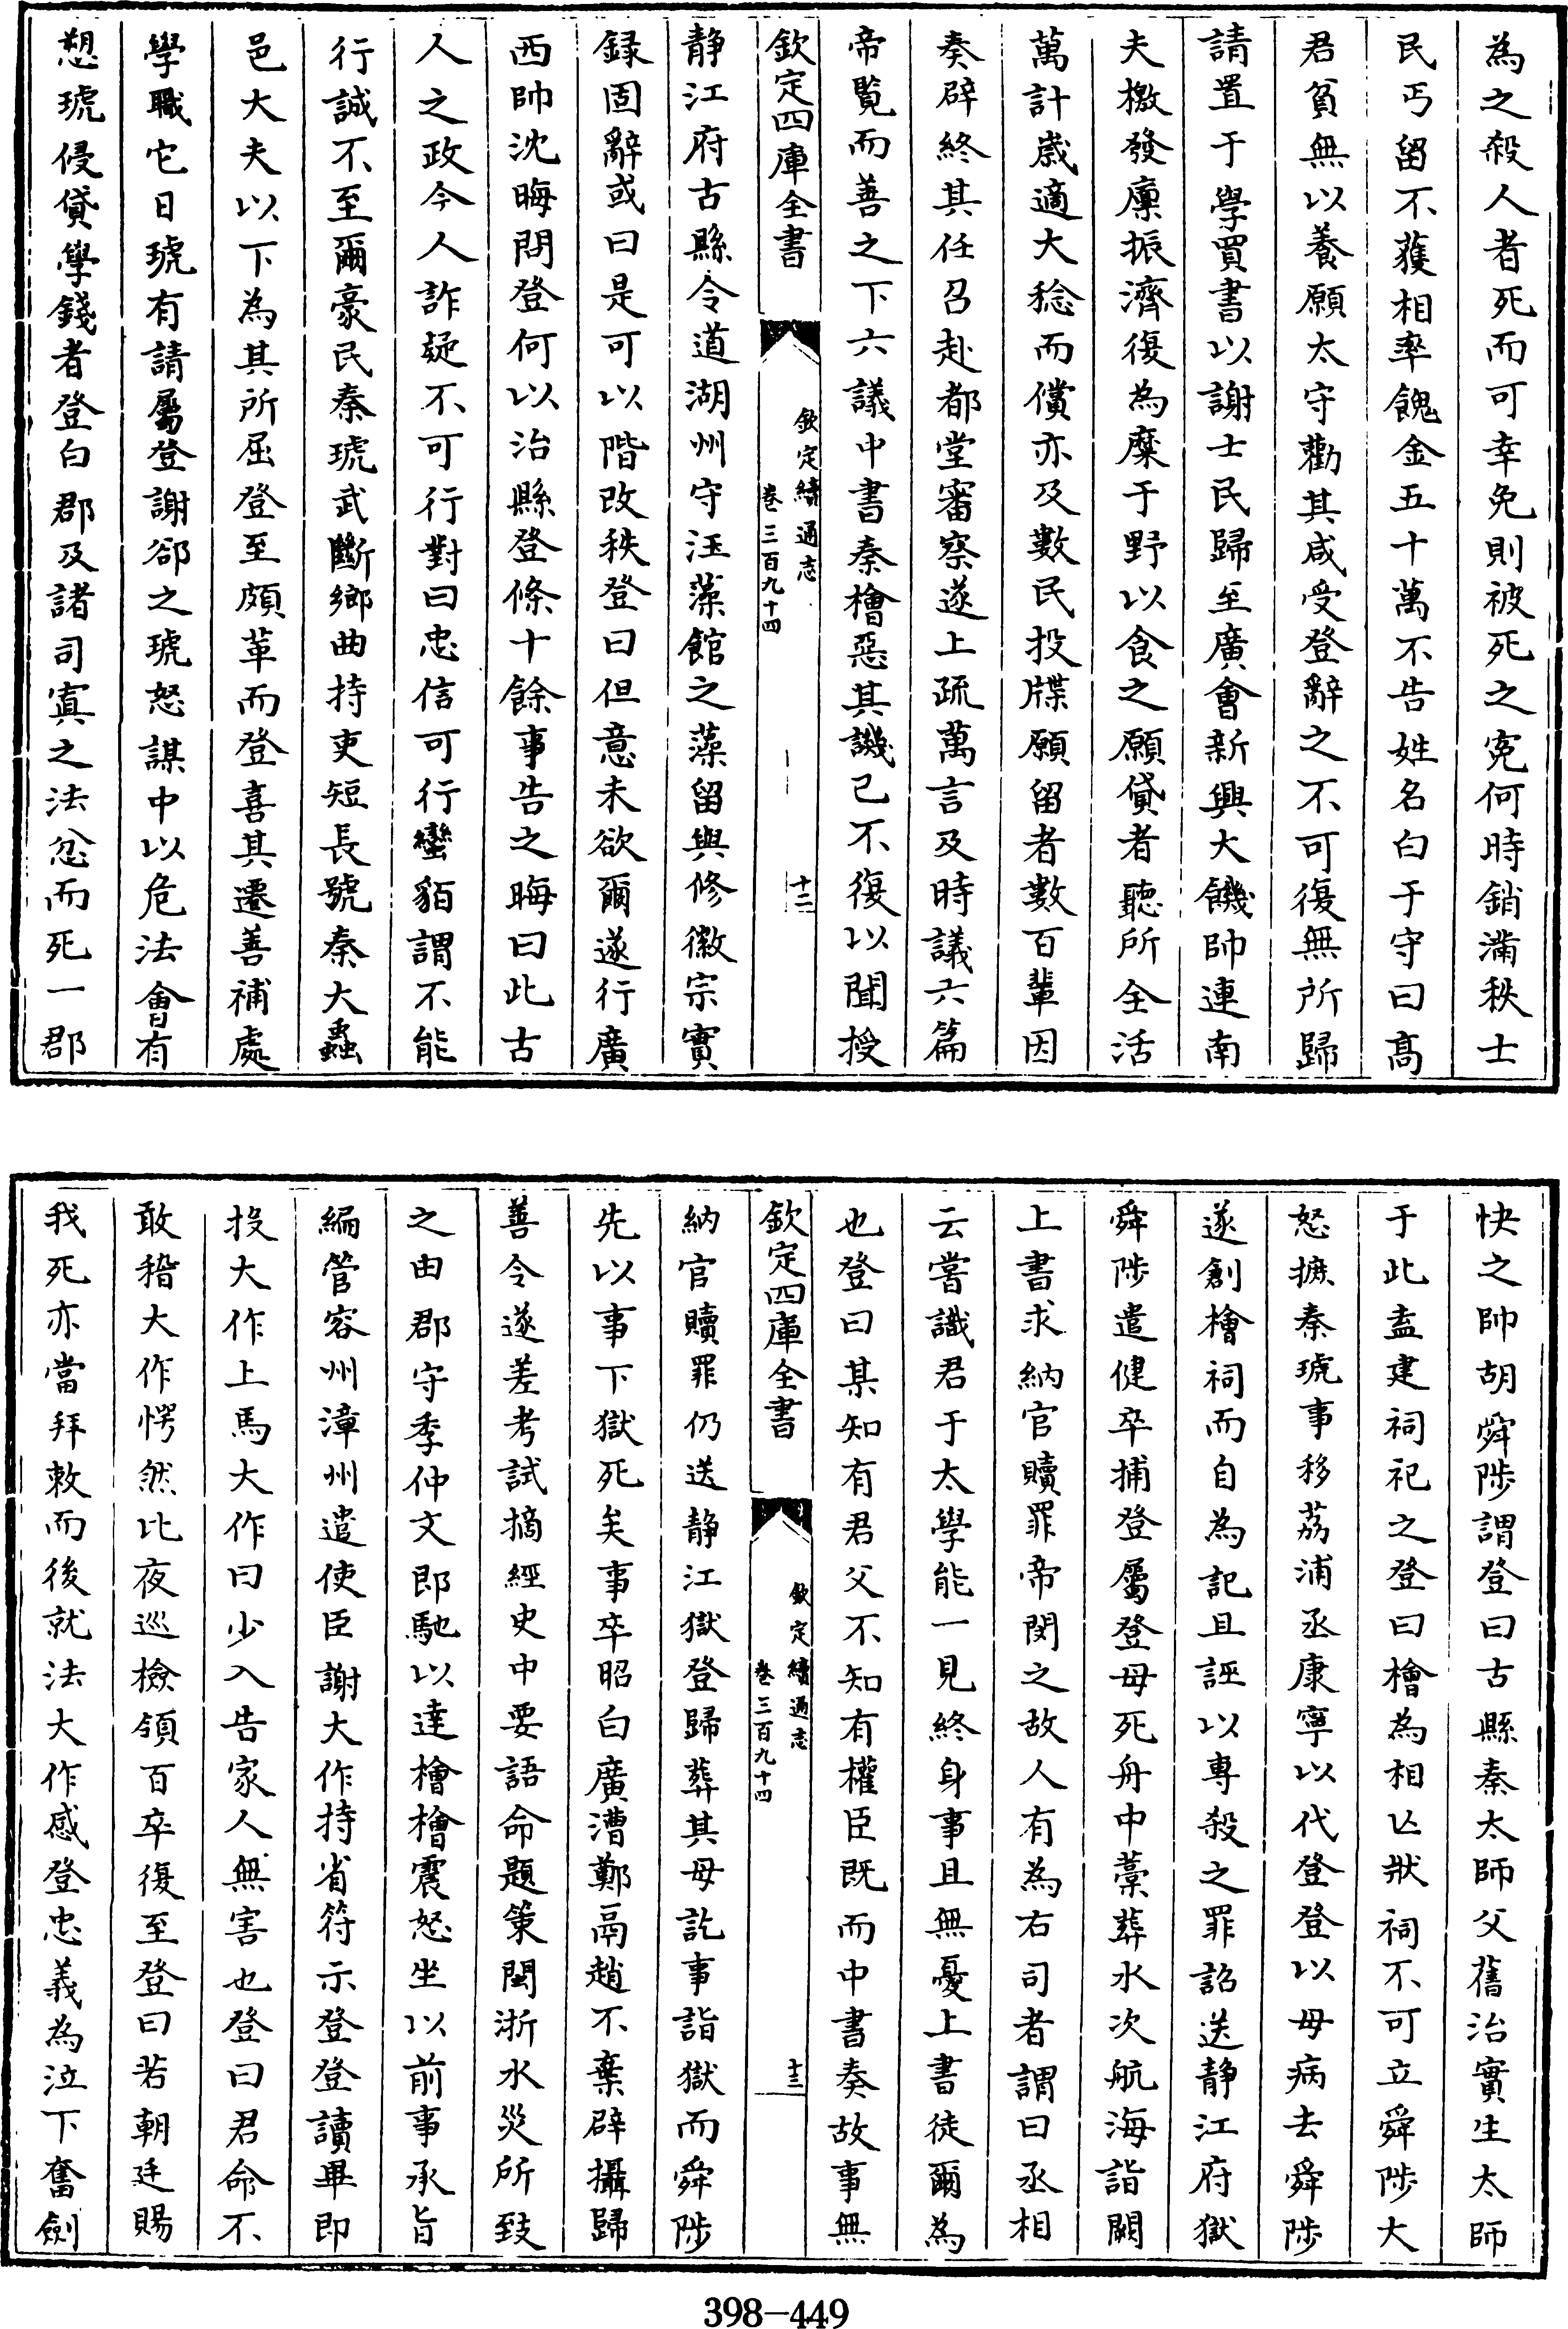 為之殺人者死而可幸免則被死之寃何時銷滿秩士
民丐留不獲相率餽金五十萬不告姓名白于守曰髙
君貧無以養願太守勸其咸受登辭之不可復無所歸
請置于學買書以謝士民歸至廣會新興大饑帥連南
夫檄發廩振濟復為糜于野以食之願貸者聽所全活
萬計歳適大稔而償亦及數民投牒願留者數百輩因
奏辟終其任召赴都堂審察遂上疏萬言及時議六篇
帝覧而善之下六議中書秦檜惡其譏已不復以聞授
欽定四庫全書
欽定續通志
卷三百九十四
十二
静江府古縣令道湖州守汪藻館之藻留與修徽宗實
録固辭或曰是可以階改秩登曰但意未欲爾遂行廣
西帥沈晦問登何以治縣登條十餘事告之晦曰此古
人之政今人詐疑不可行對曰忠信可行蠻貊謂不能
行誠不至爾豪民秦琥武斷鄉曲持吏短長號秦大蟲
邑大夫以下為其所屈登至頗革而登喜其遷善補處
學職它日琥有請屬登謝郤之琥怒謀中以危法會有
愬琥侵貸學錢者登白郡及諸司寘之法忿而死一郡
快之帥胡舜陟謂登曰古縣秦太師父舊治實生太師
于此盍建祠祀之登曰檜為相亡狀祠不可立舜陟大
怒摭秦琥事移荔浦丞康寧以代登登以母病去舜陟
遂創檜祠而自為記且誣以專殺之罪詔送静江府獄
舜陟遣健卒捕登屬登母死舟中藁葬水次航海詣闕
上書求納官贖罪帝閔之故人有為右司者謂曰丞相
云嘗識君于太學能一見終身事且無憂上書徒爾為
也登曰某知有君父不知有權臣既而中書奏故事無
欽定四庫全書
欽定續通志
卷三百九十四
十三
納官贖罪仍送静江獄登歸葬其母訖事詣獄而舜陟
先以事下獄死矣事卒昭白廣漕鄭鬲趙不棄辟攝歸
善令遂差考試摘經史中要語命題策閩浙水災所致
之由郡守李仲文即馳以達檜檜震怒坐以前事承旨
編管容州漳州遣使臣謝大作持省符示登登讀畢即
投大作上馬大作曰少入告家人無害也登曰君命不
敢稽大作愕然比夜巡檢領百卒復至登曰若朝廷賜
我死亦當拜敕而後就法大作感登忠義為泣下奮劍
398-449